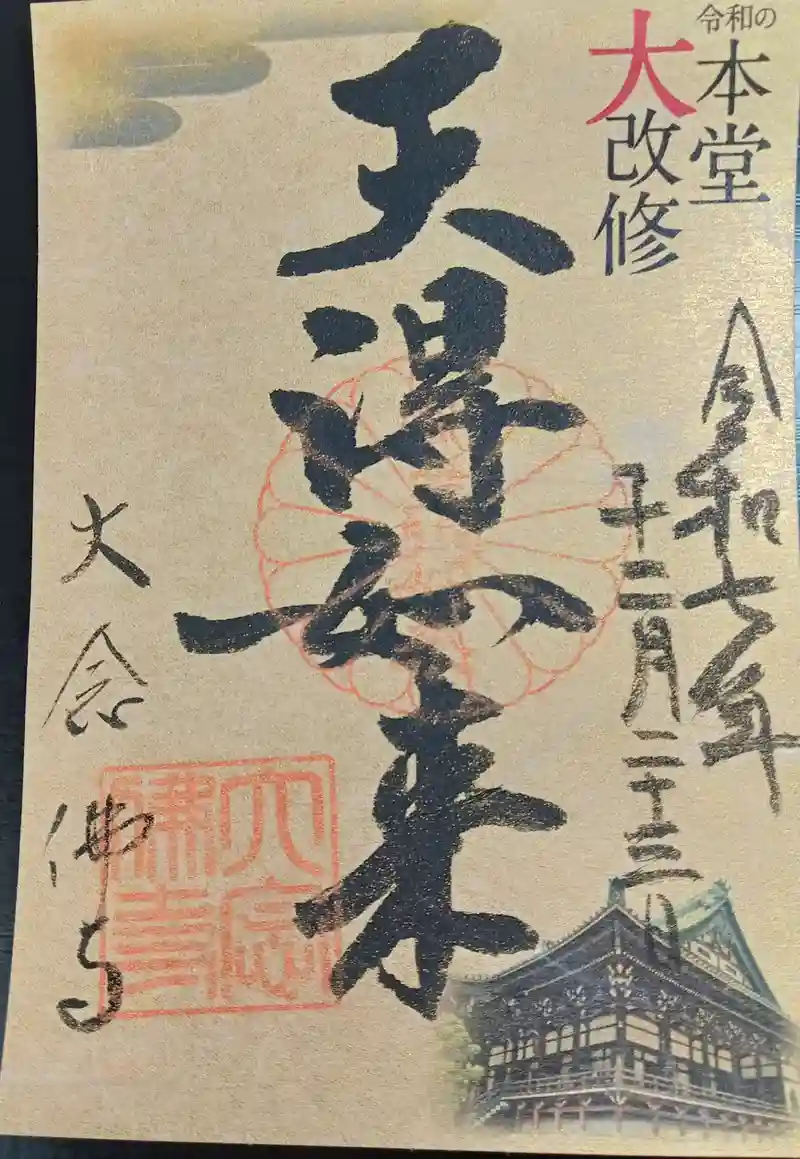 令和の
本堂
大改修
令和七年
十二月二十三日
天得如来
大念佛寺
大念
佛寺